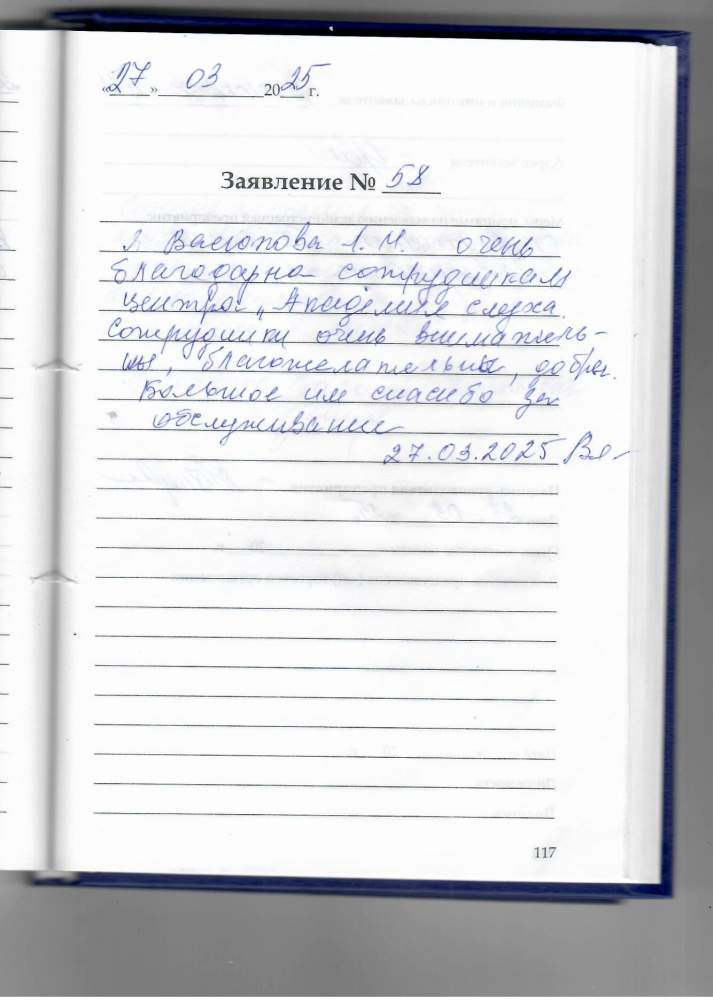 «27» 03 2025 г.
Заявление № 58
Я Васюпова Л.Н. очень
благодарна сотрудникам
центра „Академия слуха.
Сотрудники очень вниматель-
ны, благожелательны, добры.
Большое им спасибо за
обслуживание
27.03.2025
117